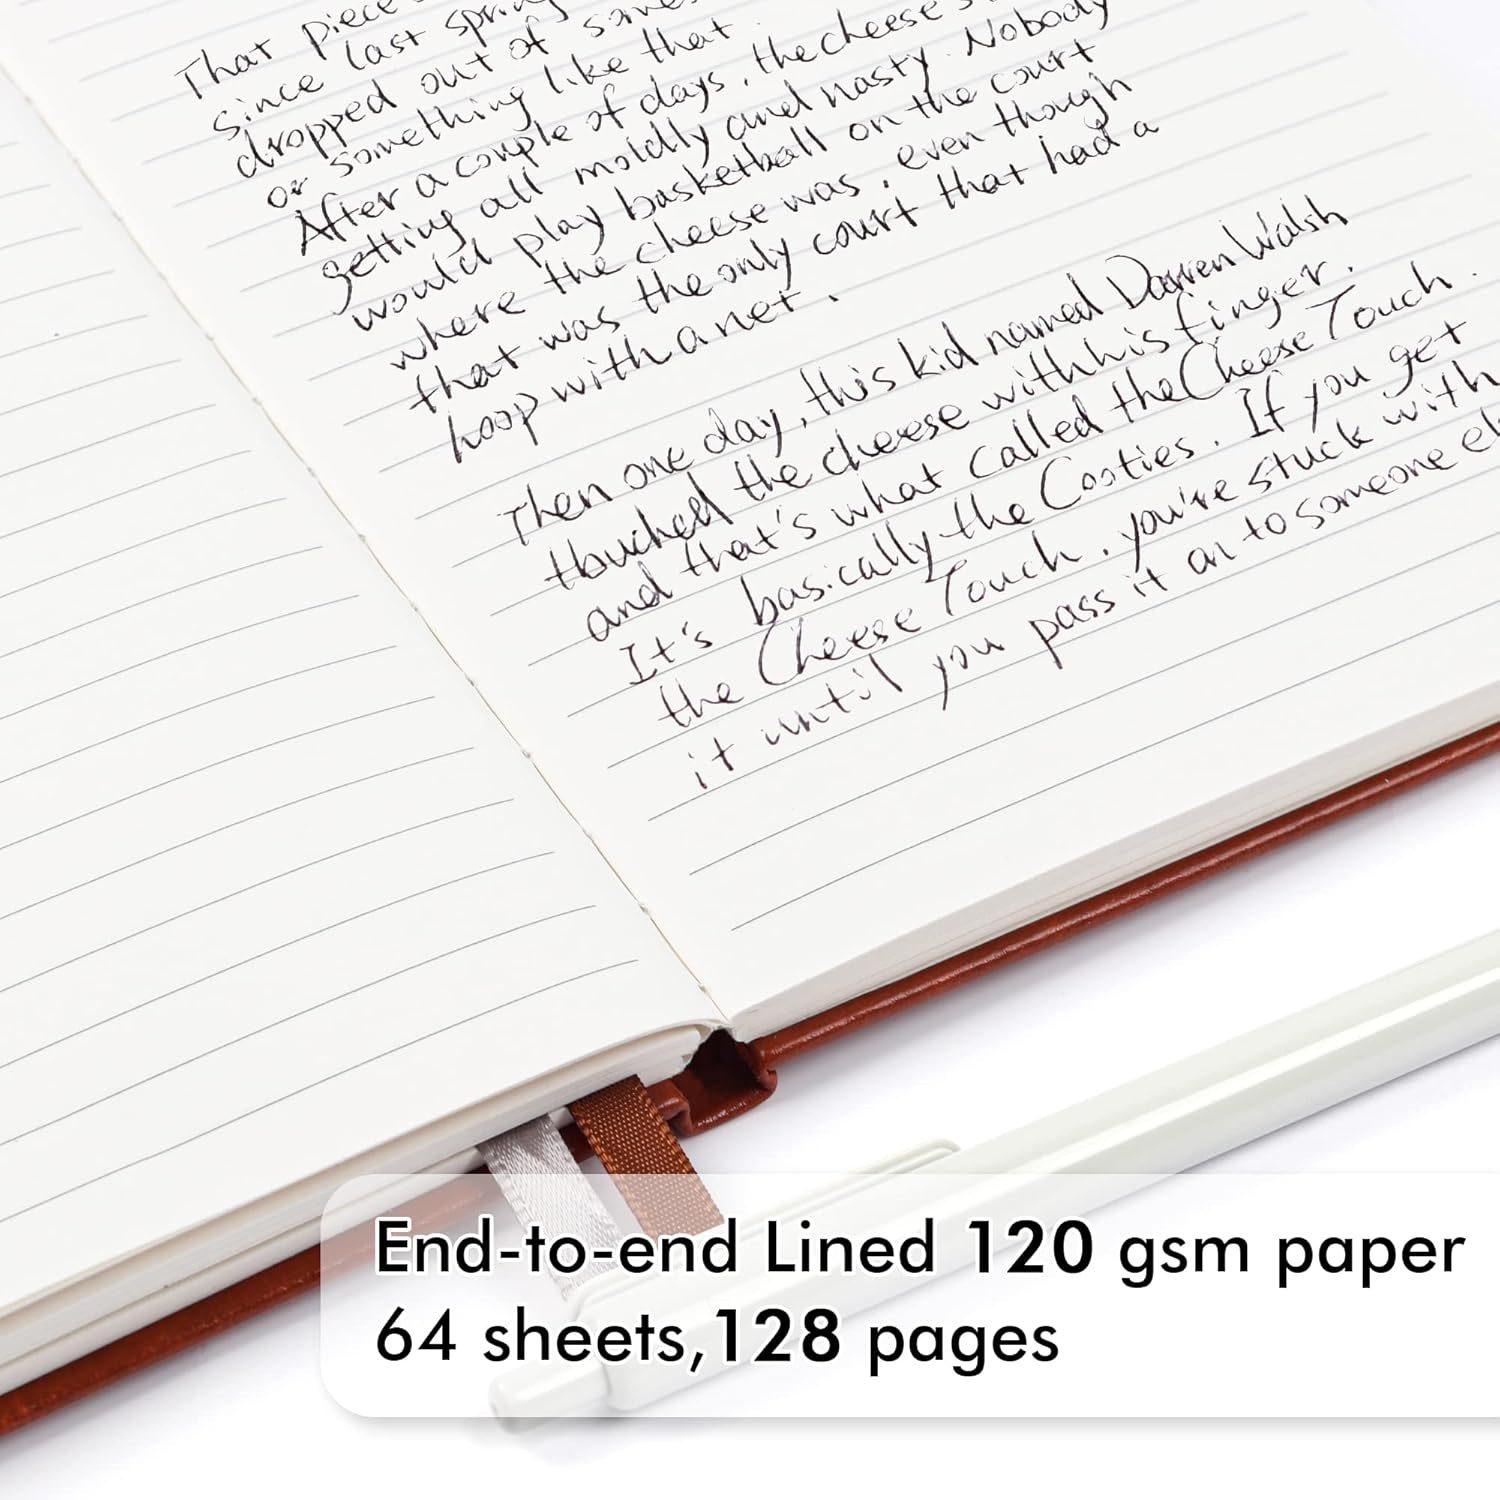 That piece
since last spring
dropped out of some
or something like that
After a couple of days, the cheese s
getting all moldly and nasty. Nobody
would play basketball on the court
where the cheese was, even though
that was the only court that had a
hoop with a net.
Then one day, this kid named Darren Walsh
touched the cheese with his finger.
and that's what called the Cheese Touch.
It's basically the Cooties. If you get
the Cheese Touch, you're stuck with
it until you pass it on to someone el
End-to-end Lined 120 gsm paper
64 sheets,128 pages